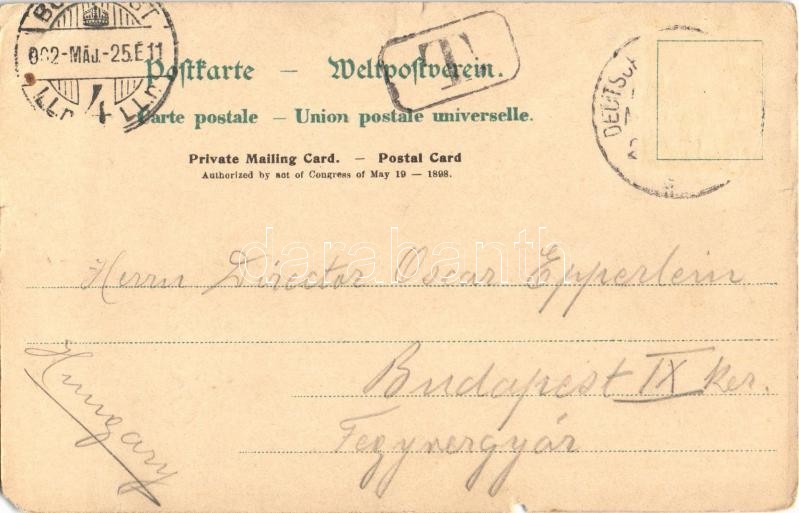 902-MÁJ.-25.É11
4
T.
DEUTSCH
Postkarte — Weltpostverein.
Carte postale — Union postale universelle.
Private Mailing Card. — Postal Card
Authorized by act of Congress of May 19 — 1898.
darabanth
Herrn Director Oscar Epperlein
Budapest IX ker.
Fegyvergyár
Hungary